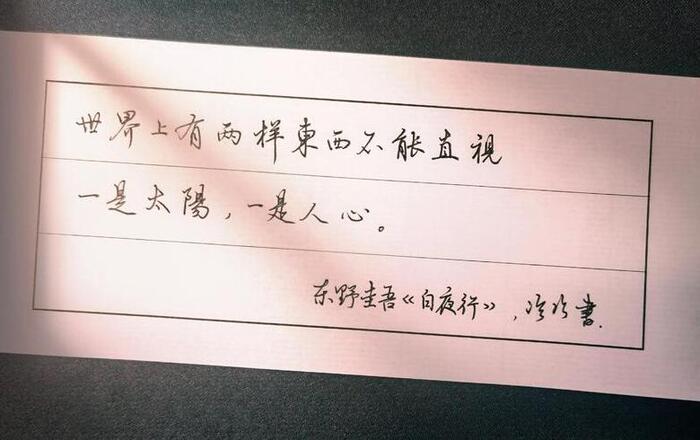 世界上有两样東西不能直視
一是太陽，一是人心。
东野圭吾《白夜行》，冷冷書.